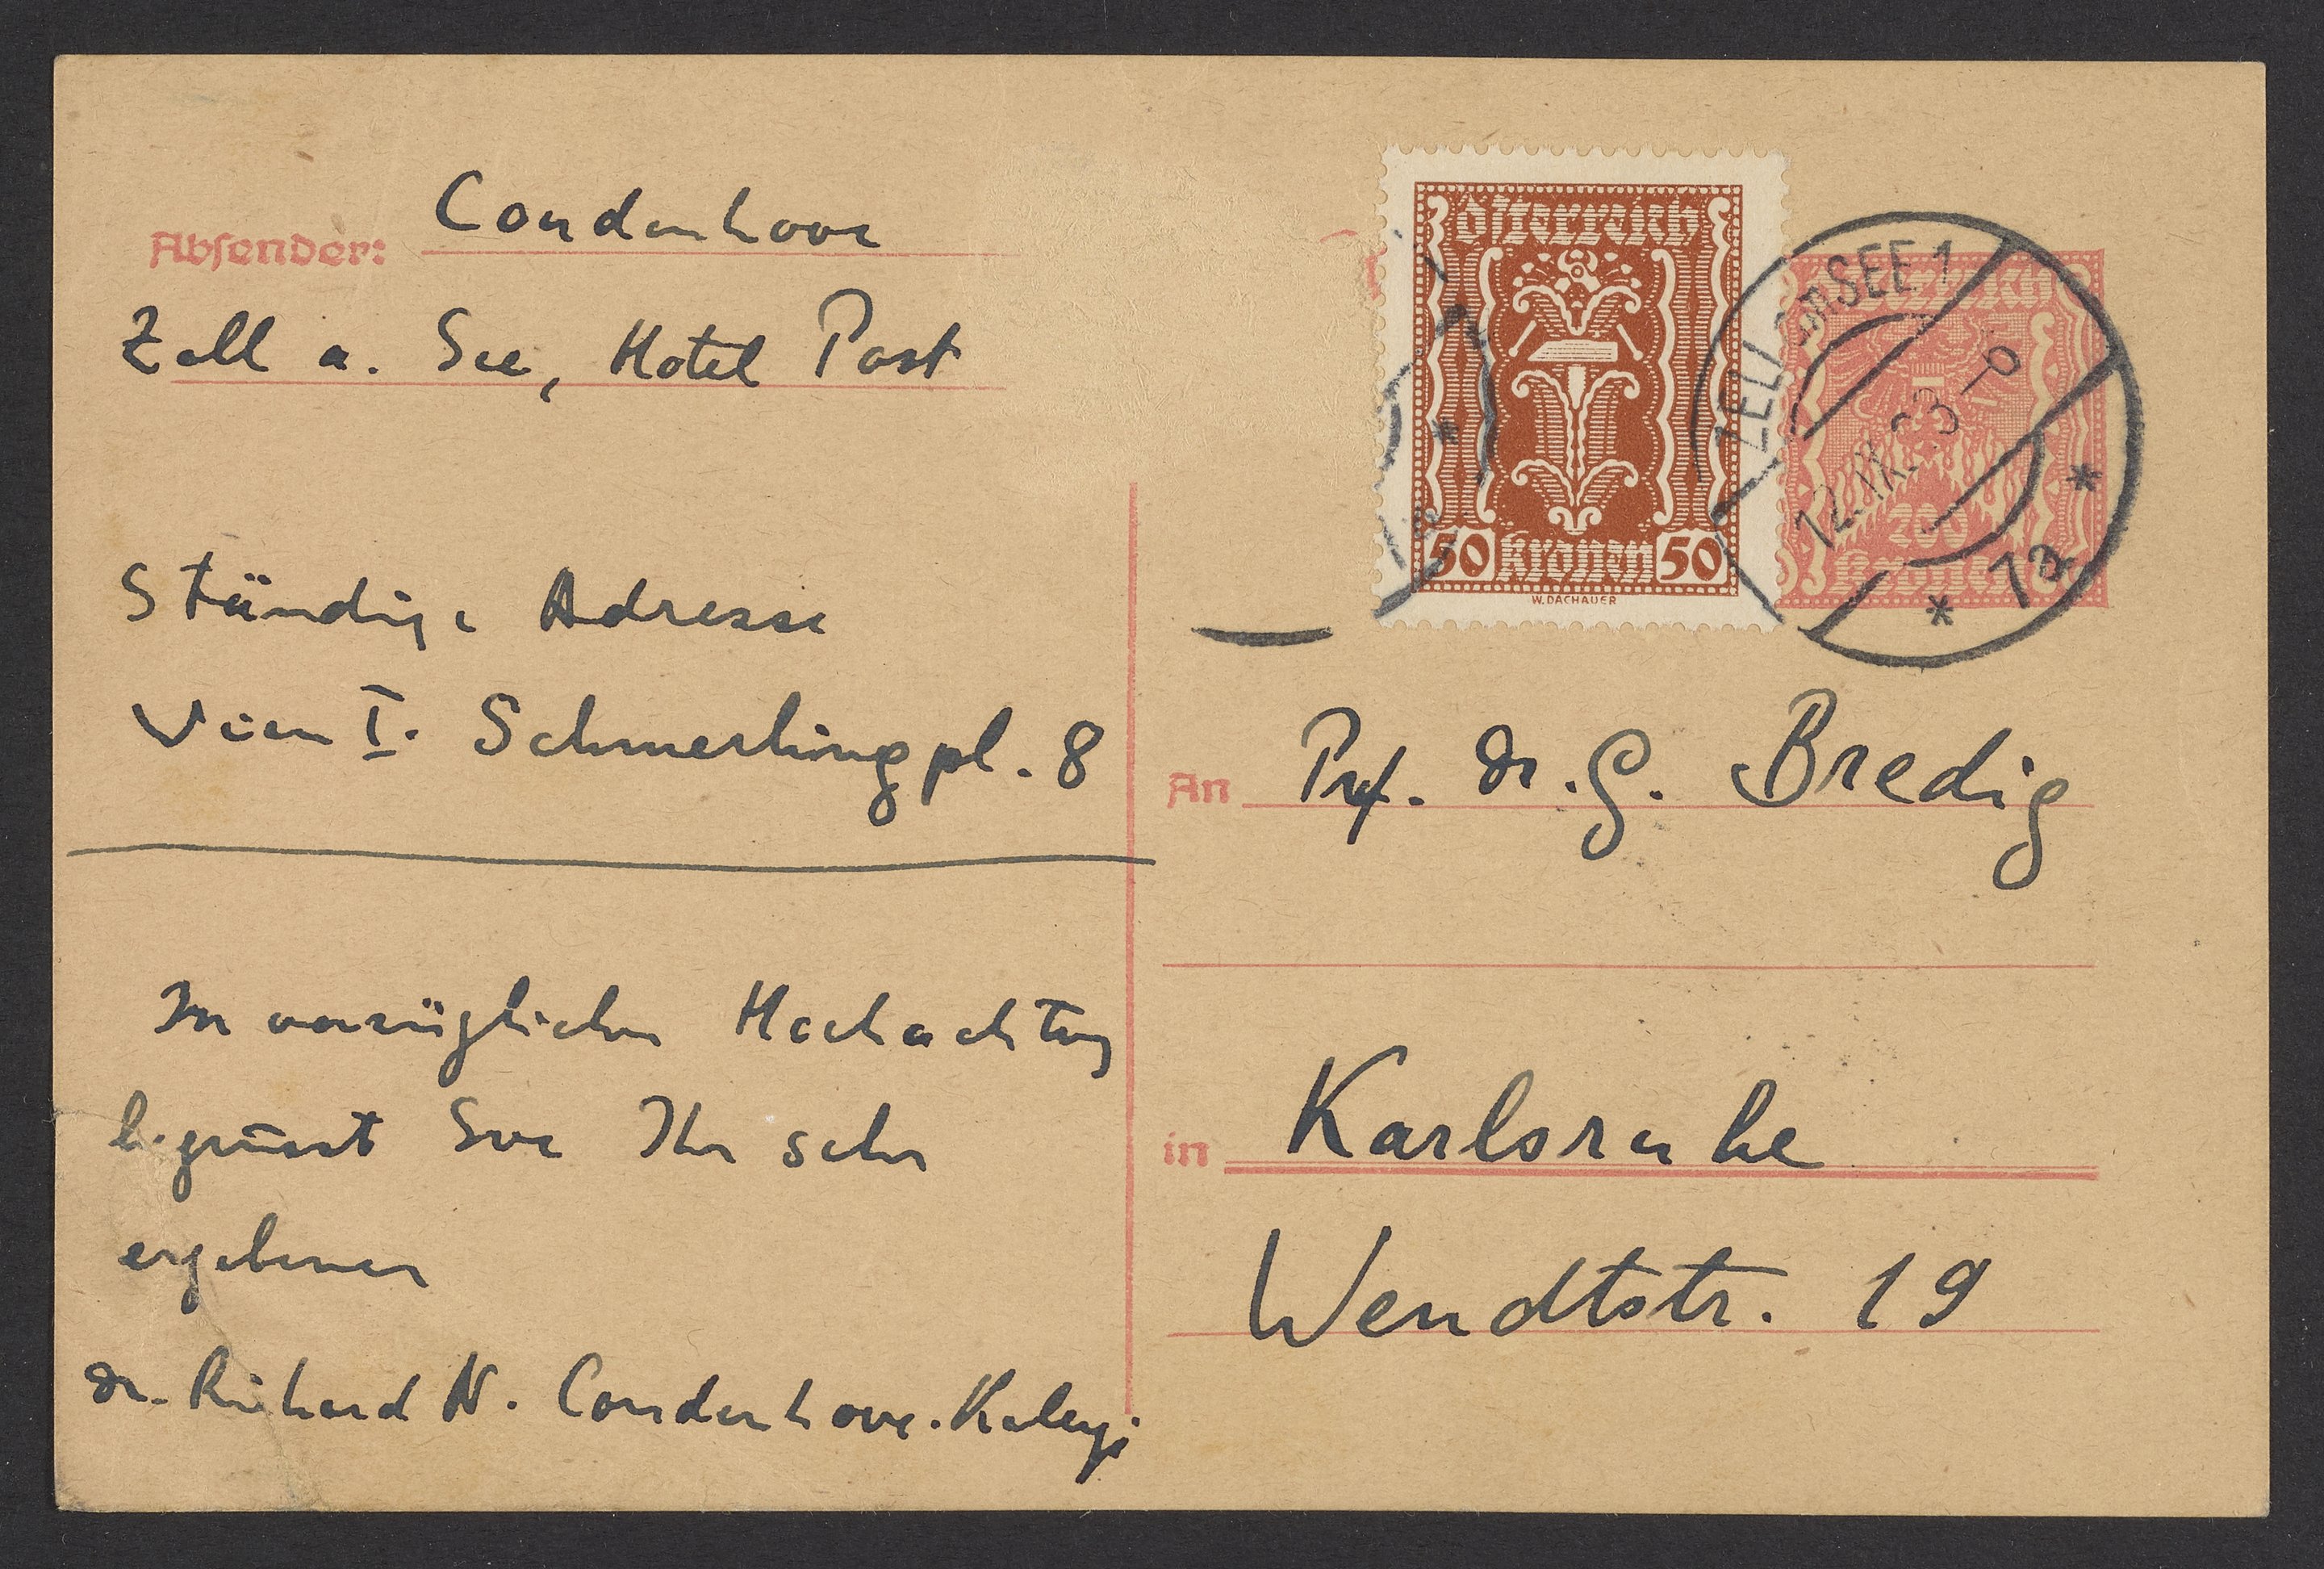 Absender: Coudenhove
Zell a. See, Hotel Post
Ständige Adresse
Wien I. Schmerlingpl. 8
In vorzüglicher Hochachtung
begrüsst Sie Ihr sehr
ergebener
Dr. Richard N. Coudenhove-Kalergi
Österreich
50 Kronen 50
W. DACHAUER
Österreich
200
Kronen
ZELL AM SEE 1
12.IX.23
* 1a *
An Prof. Dr. G. Bredig
in Karlsruhe
Wendtstr. 19